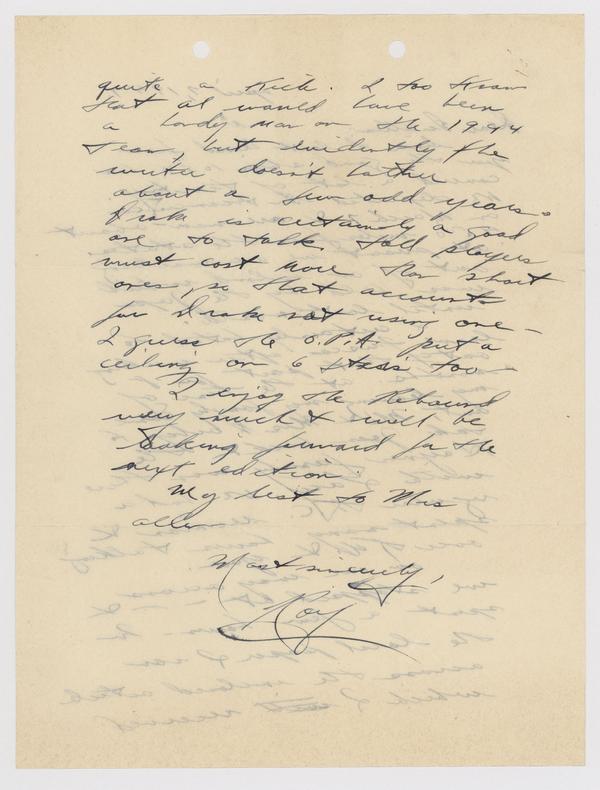 quite a kick. I too know
that al would have been
a handy man on the 1944
Team, but evidently the
writer doesn't bother
about a few odd years.
Drake is certainly a good
one to talk. Tall players
must cost more than short
ones, so that accounts
for Drake not using one —
I guess the O.P.A. put a
ceiling on 6 too —
I enjoy the Rebound
very much & will be
looking forward for the
next edition.
My best to Mrs
allen
Most sincerely,
Roy